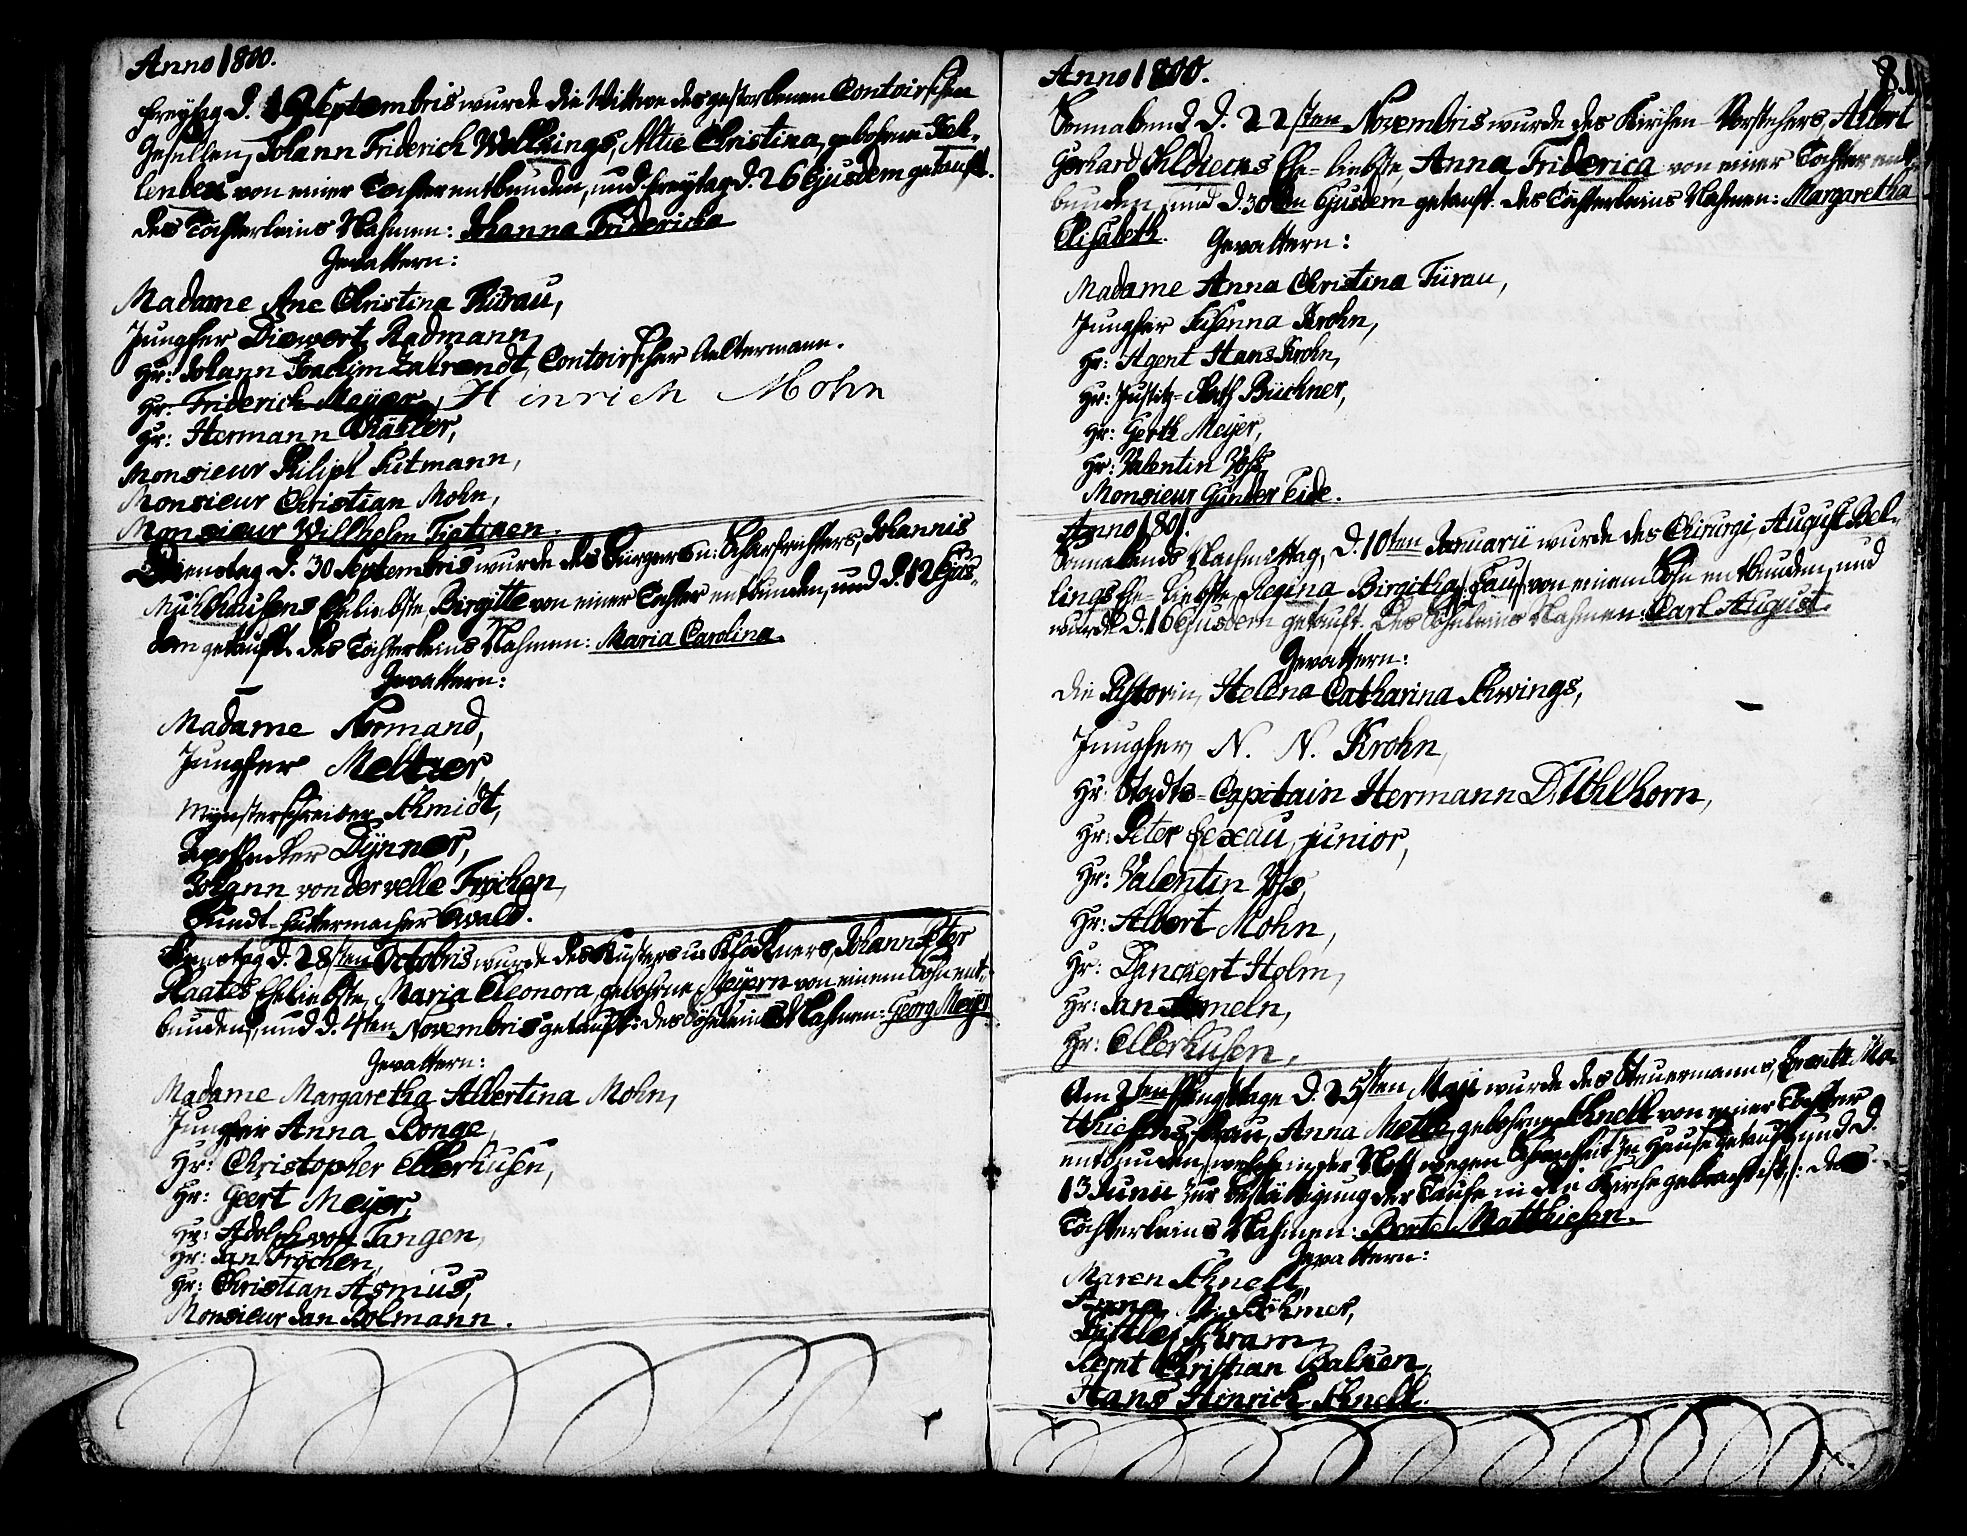 Anno 1800.
Freytag d. 19 Septembris wurde die Wittwe des gestorbenen Contoirschen
Gesellen, Johann Friderich Wellings, Altie Christina, gebohrne
von einer Tochter entbunden, und Freytag d. 26 Ejusdem getauft.
des Töchterleins Nahmen: Johanna Fridericka
Gevattern:
Madame Ane Christina Fürau,
Jungfer Diewert Radmann,
Hr: Johann Joachim Zabrendt, Contoirscher Aeltermann.
Hr: Friderich Meyer, Hinrich Mohn
Hr: Hermann Kähler,
Monsieur Philipt Sutmann,
Monsieur Christian Mohn,
Monsieur Willhelm
Dienstag d. 30 Septembris wurde des Bürgers u: Scharfrichters, Johannis
Mühlhausens Eheliebste, Birgitte von einer Tochter entbunden, und d. 12 Ejus-
dem getauft. des Töchterleins Nahmen: Maria Carolina.
Gevattern:
Madame Normand,
Jungfer Meltzer,
Mynsterschreiber Schmidt,
Apothecker Dynner,
Johann von der velle Frøchen,
Hutmacher Ewald.
Dienstag d. 28sten Octobris wurde des Küsters u: Klöckners, Johann Peter
Klaates Eheliebste, Maria Eleonora, gebohrne Meyern von einem Sohn ent-
bunden, und d. 4ten Novembris getauft: des Söhnleins Nahmen: Georg Meyer
Gevattern:
Madame Margaretha Albertina Mohn,
Jungfer Anna Bonge,
Hr: Christopher Ellerhusen,
Hr: Geert Meyer,
Hr: Adolph von Tangen,
Hr: Jan Frøchen,
Hr: Christian Asmus,
Monsieur Jan Bolmann.
Anno 1800.
81
Sonnabend d. 22sten Novembris wurde des Kirchen-Vorstehers, Albert
Gerhard Ehe-liebste, Anna Friderica von einer Tochter ent-
bunden, und d. 30ten Ejusdem getauft. des Töchterleins Nahmen: Margaretha
Elisabeth.
Gevattern:
Madame Anna Christina Fürau,
Jungfer Susanna Krohn,
Hr: Agent Hans Krohn,
Hr: Justitz-Rath Büchner,
Hr: Gerth Meyer,
Hr: Valentin Voss,
Monsieur Günder Eide.
Anno 1801.
Sonnabends Nachmittag, d. 10ten Januarii wurde des Chirurgi, August Bel-
lings Ehe-liebste, Regina Birgitha von einem Sohn entbunden, und
wurde d. 16 Ejusdem getauft. Des Söhnleins Nahmen: Carl August.
Gevattern:
die Pastorin, Helena Catharina Schwings,
Jungfer N. N. Krohn,
Hr: Stadts-Capitain Hermann Dithlhorn,
Hr: Peter junior,
Hr: Valentin Voss,
Hr: Albert Mohn,
Hr: Danckert Holm,
Hr: Jan Armeln,
Hr: Ellerhusen,
Am 2ten Pfingsttage d. 25sten Maji wurde des Steuermanns, Berentt Ma-
thiesens Frau, Anna Metta, gebohrne Schnell von einer Tochter
entbunden, welche in der Noth wegen Schwachheit zu Hause getauft, und d.
13 Junii zur Bestättigung der Taufe in die Kirche gebracht ist: des
Töchterleins Nahmen: Berte Matthiesen.
Gevattern:
Maren Schnell,
Anna Böhmer,
Dittlef Schram,
Bernt Christian Balzen,
Hans Hinrich Schnell.